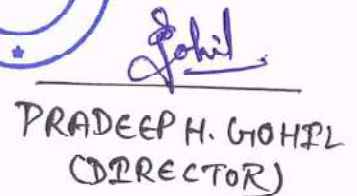 Gohil
PRADEEP H. GOHIL
(DIRECTOR)